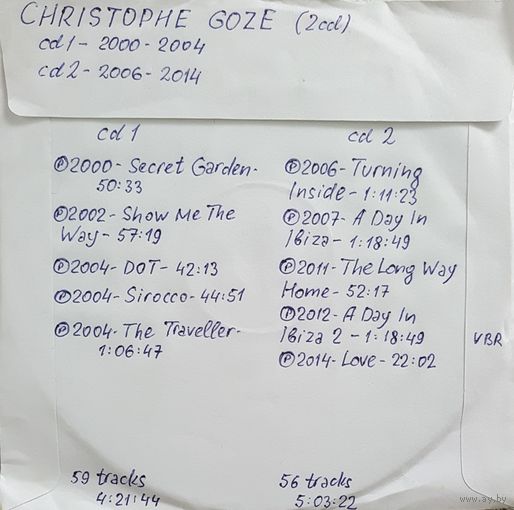 CHRISTOPHE GOZE (2cd)
cd1 - 2000 - 2004
cd2 - 2006 - 2014
cd 1
℗2000- Secret Garden-
50:33
℗2002- Show Me The
Way- 57:19
℗2004- DOT- 42:13
℗2004- Sirocco- 44:51
℗2004- The Traveller-
1:06:47
59 tracks
4:21:44
cd 2
℗2006- Turning
Inside- 1:11:23
℗2007- A Day In
Ibiza- 1:18:49
℗2011- The Long Way
Home- 52:17
℗2012- A Day In
Ibiza 2 - 1:18:49
℗2014- Love- 22:02
56 tracks
5:03:22
VBR
www.ay.by